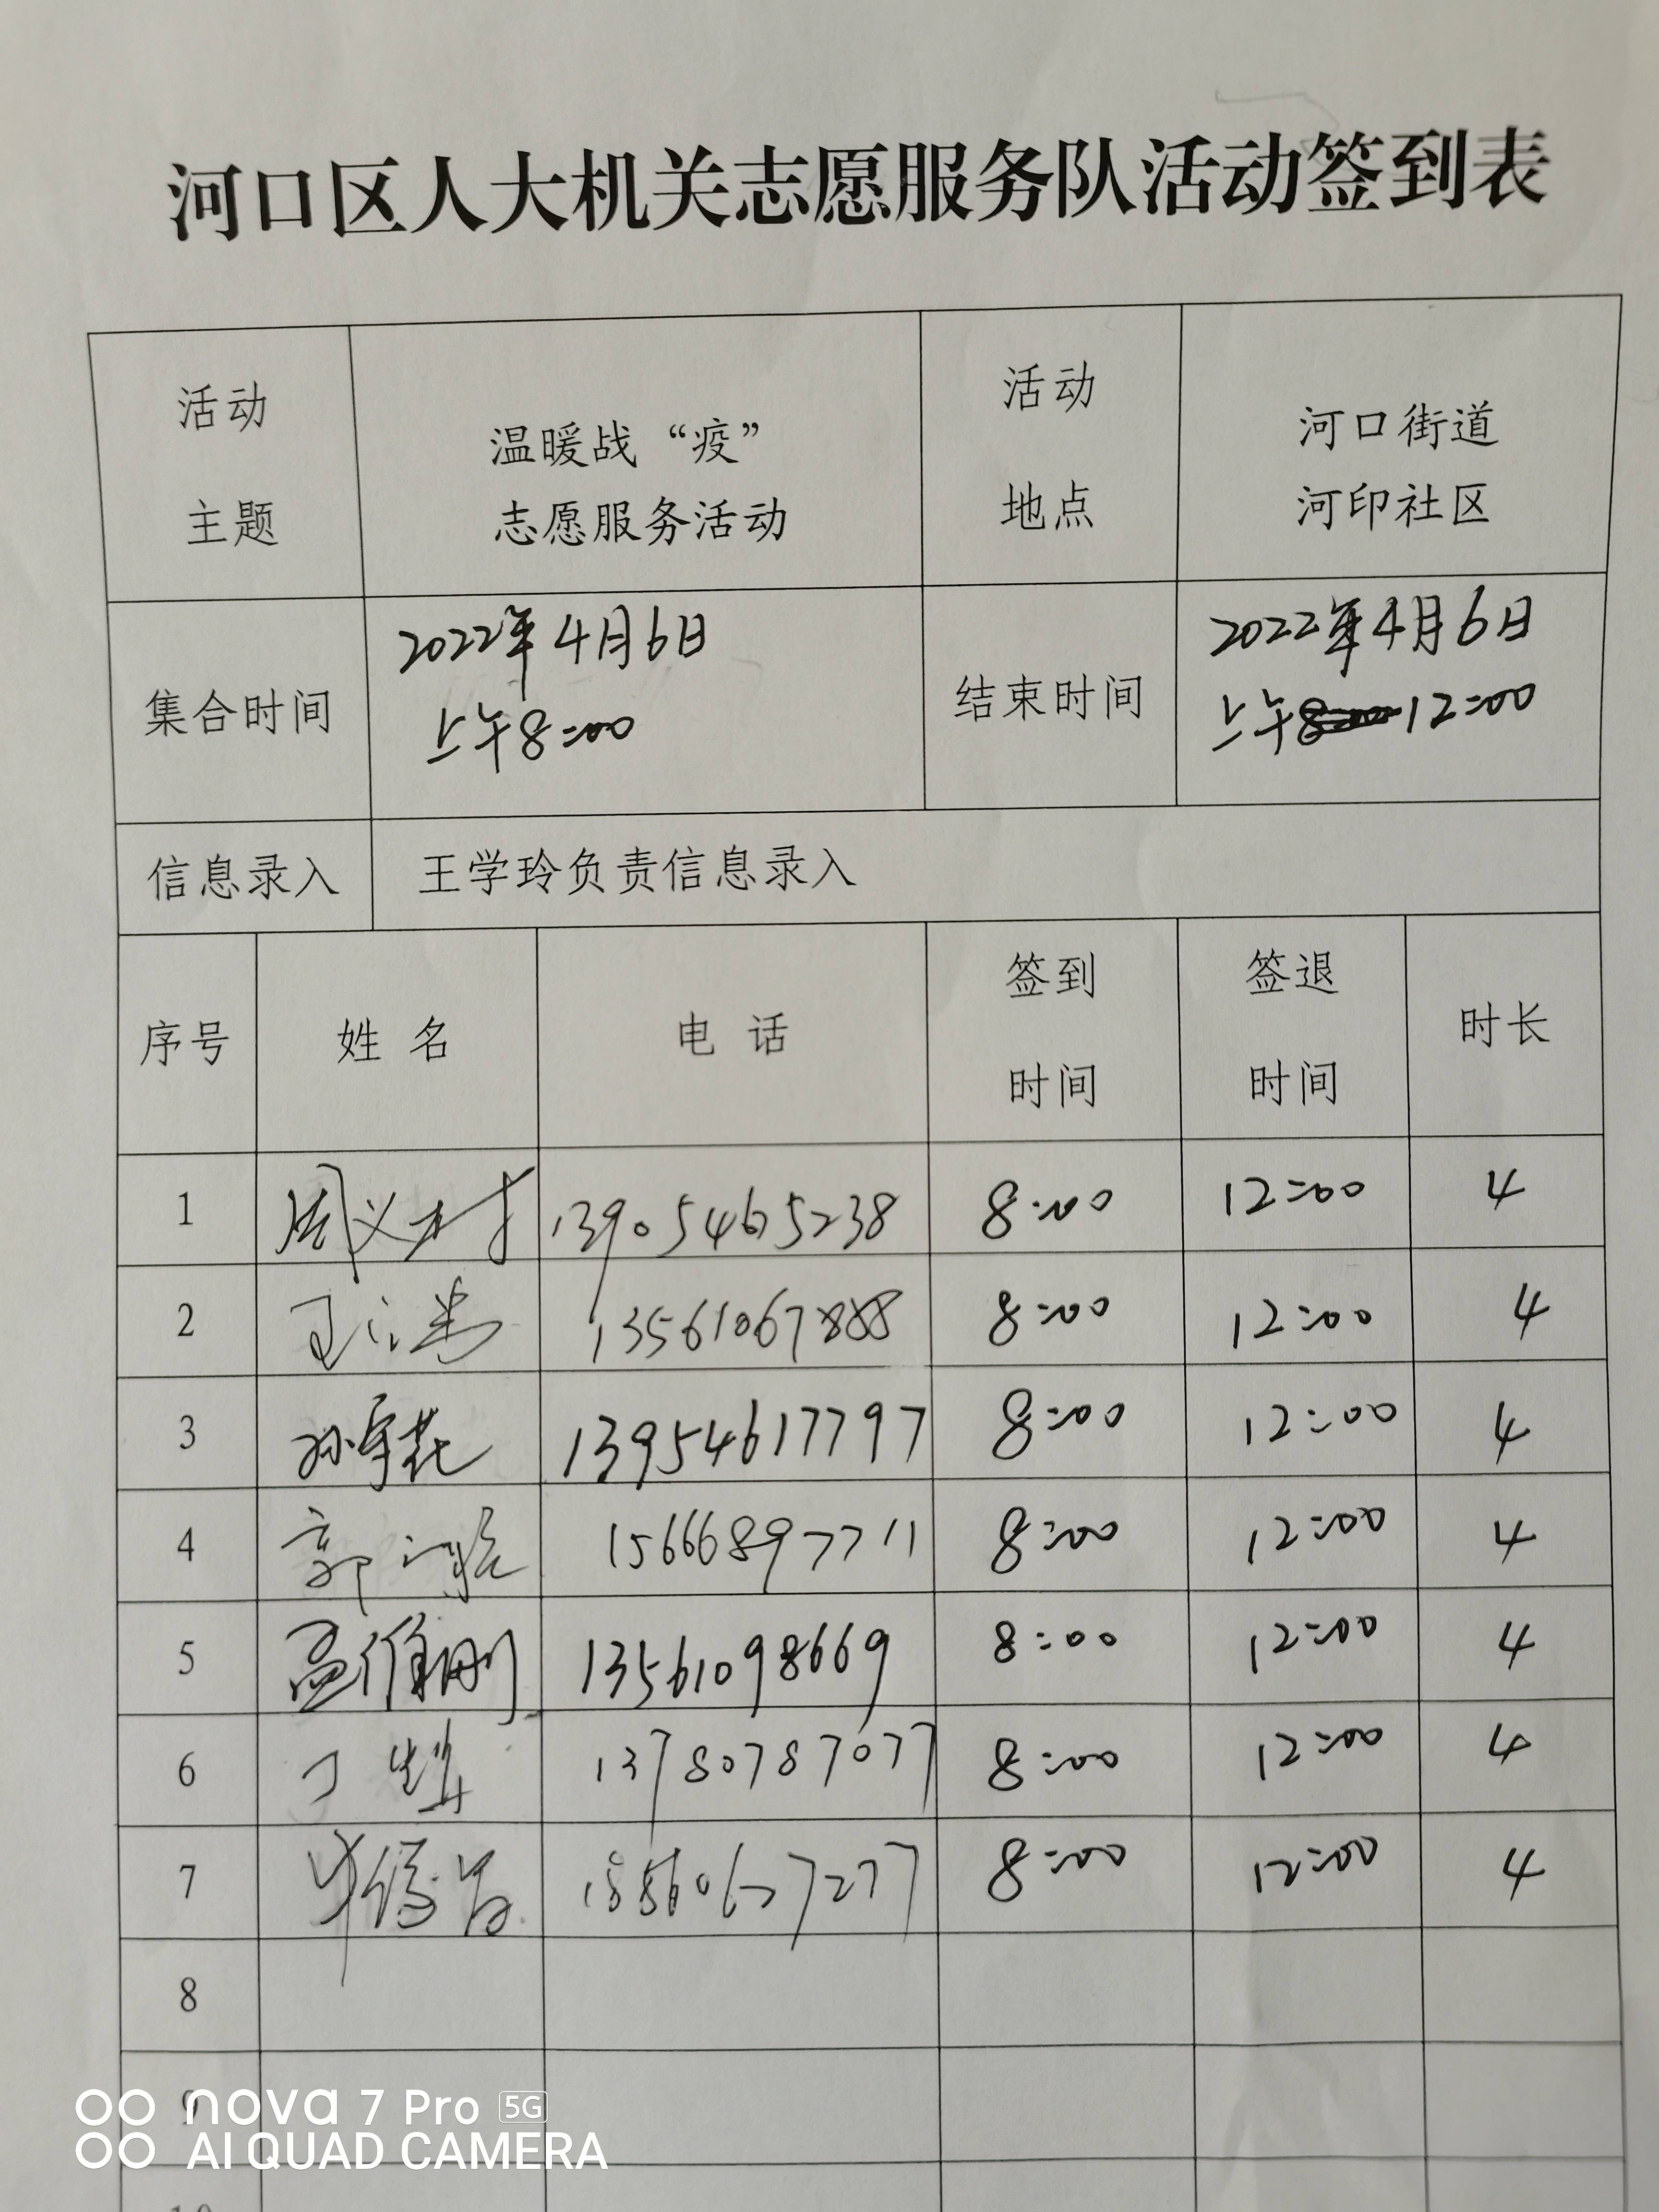 河口区人大机关志愿服务队活动签到表
活动
主题
温暖战“疫”
志愿服务活动
活动
地点
河口街道
河印社区
集合时间
2022年4月6日
上午8:00
结束时间
2022年4月6日
上午 12:00
信息录入
王学玲负责信息录入
序号 姓 名 电 话 签到时间 签退时间 时长
1 周义村 13905465238 8:00 12:00 4
2 13561067888 8:00 12:00 4
3 13954617797 8:00 12:00 4
4 郭 15666897711 8:00 12:00 4
5 孟维刚 13561098669 8:00 12:00 4
6 丁 13780787077 8:00 12:00 4
7 8:00 12:00 4
8
9
10
nova 7 Pro 5G
AI QUAD CAMERA